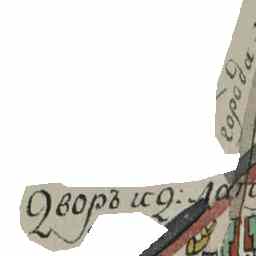 города
Дворъ и д: лан